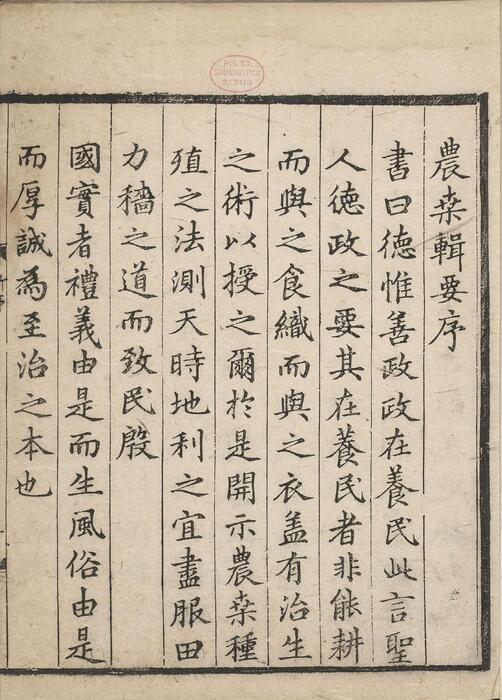 農桒輯要序
書曰徳惟善政政在養民此言聖
人徳政之要其在養民者非能耕
而與之食織而與之衣盖有治生
之術以授之爾於是開示農桒種
殖之法測天時地利之宜盡服田
力穡之道而致民殷
國實者禮義由是而生風俗由是
而厚誠為至治之本也